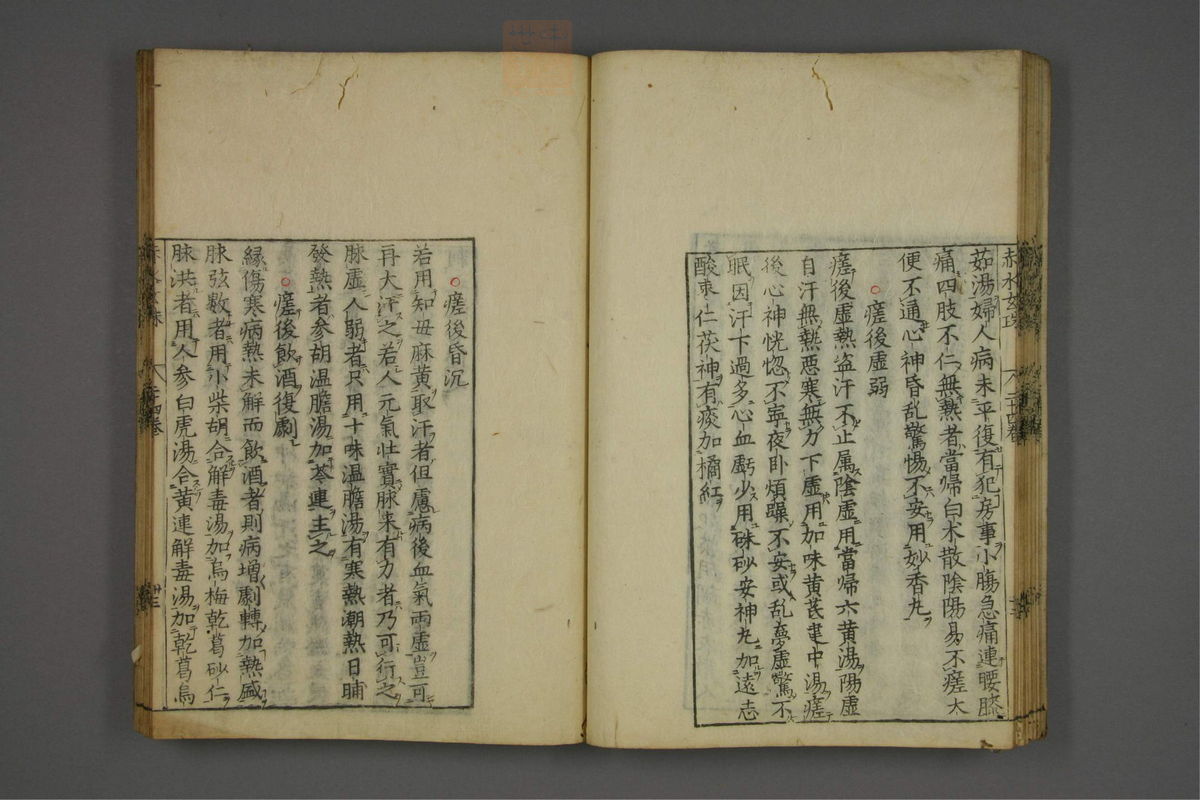 茹湯婦人病未平復有犯房事小腸急痛連腰膝
痛四肢不仁無熱者當帰白朮散陰陽易不瘥大
便不通心神昏乱驚惕不安用妙香丸
瘥後虚弱
瘥後虚熱盗汗不止属陰虚用當帰六黄湯陽虚
自汗無熱悪寒無力下虚用加味黄芪建中湯瘥
後心神恍惚不寧夜卧煩躁不安或乱夢虚驚不
眠因汗下過多心血虧少用硃砂安神丸加遠志
酸棗仁茯神有痰加橘紅
瘥後昏沉
若用知母麻黄取汗者但慮病後血氣両虚豈可
再大汗之若人元氣壮實脉来有力者乃可行之
脉虚人弱者只用十味温膽湯有寒熱潮熱日晡
發熱者参胡温膽湯加苓連主之
瘥後飲酒復劇
縁傷寒病熱未解而飲酒者則病増劇轉加熱盛
脉弦数者用小柴胡合解毒湯加烏梅乾葛砂仁
脉洪者用人参白虎湯合黄連解毒湯加乾葛烏